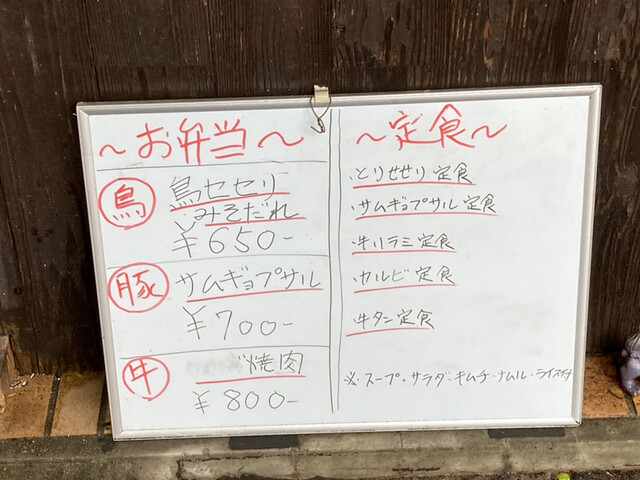 ～お弁当～
鳥 鳥セセリ
みそだれ
¥650-
豚 サムギョプサル
¥700-
牛 焼肉
¥800-
～定食～
・とりせせり定食
・サムギョプサル定食
・牛ハラミ定食
・カルビ定食
・牛タン定食
※スープ・サラダ・キムチ・ナムル・ライス付